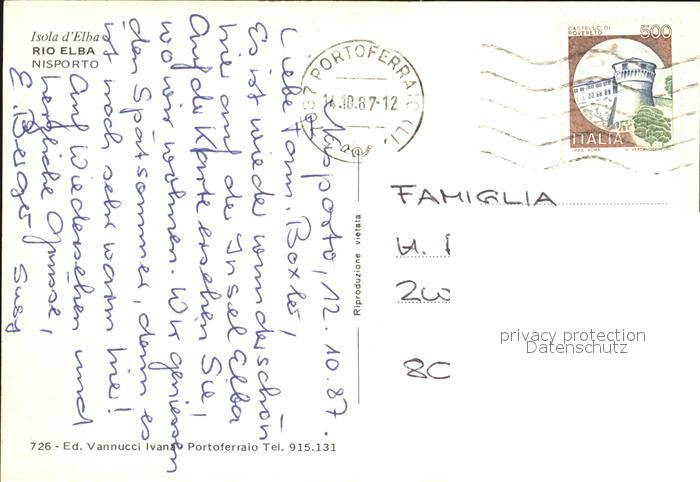 Isola d'Elba
RIO ELBA
NISPORTO
Nisporto, 12. 10. 87.
Liebe Fam. Boxler!
Es ist wieder wunderschön
hier auf der Insel Elba
Auf der Karte ersehen Sie,
wo wir wohnen. Wir geniessen
den Spätsommer, denn es
ist noch sehr warm hier!
Auf Wiedersehen und
herzliche Grüsse,
E. Berger Susy
PORTOFERRAIO (LI)
14.10.87-12
CASTELLO DI
ROVERETO
500
ITALIA
FAMIGLIA
H.
20
80
privacy protection
Datenschutz
Riproduzione vietata
726 - Ed. Vannucci Ivana Portoferraio Tel. 915.131